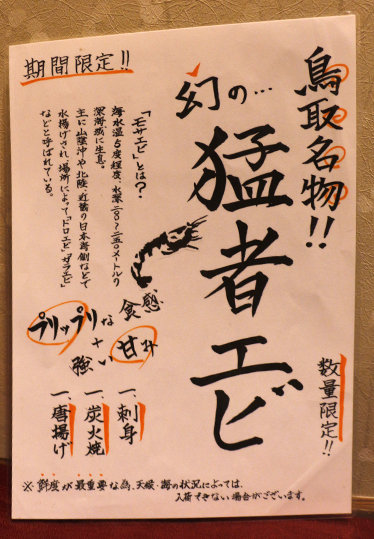 鳥取名物!!
幻の…
猛者エビ
数量限定!!
期間限定!!
「モサエビ」とは?
海水温5度程度、水深二〇〇〜二五〇メートルの
深海域に生息。
主に山陰沖や北陸・近畿の日本海側などで
水揚げされ、場所によって「ドロエビ」「ガラエビ」
などと呼ばれている。
プリップリな食感
+
強い甘み
一、刺身
一、炭火焼
一、唐揚げ
※鮮度が最重要な為、天候・海の状況によっては、
入荷できない場合がございます。